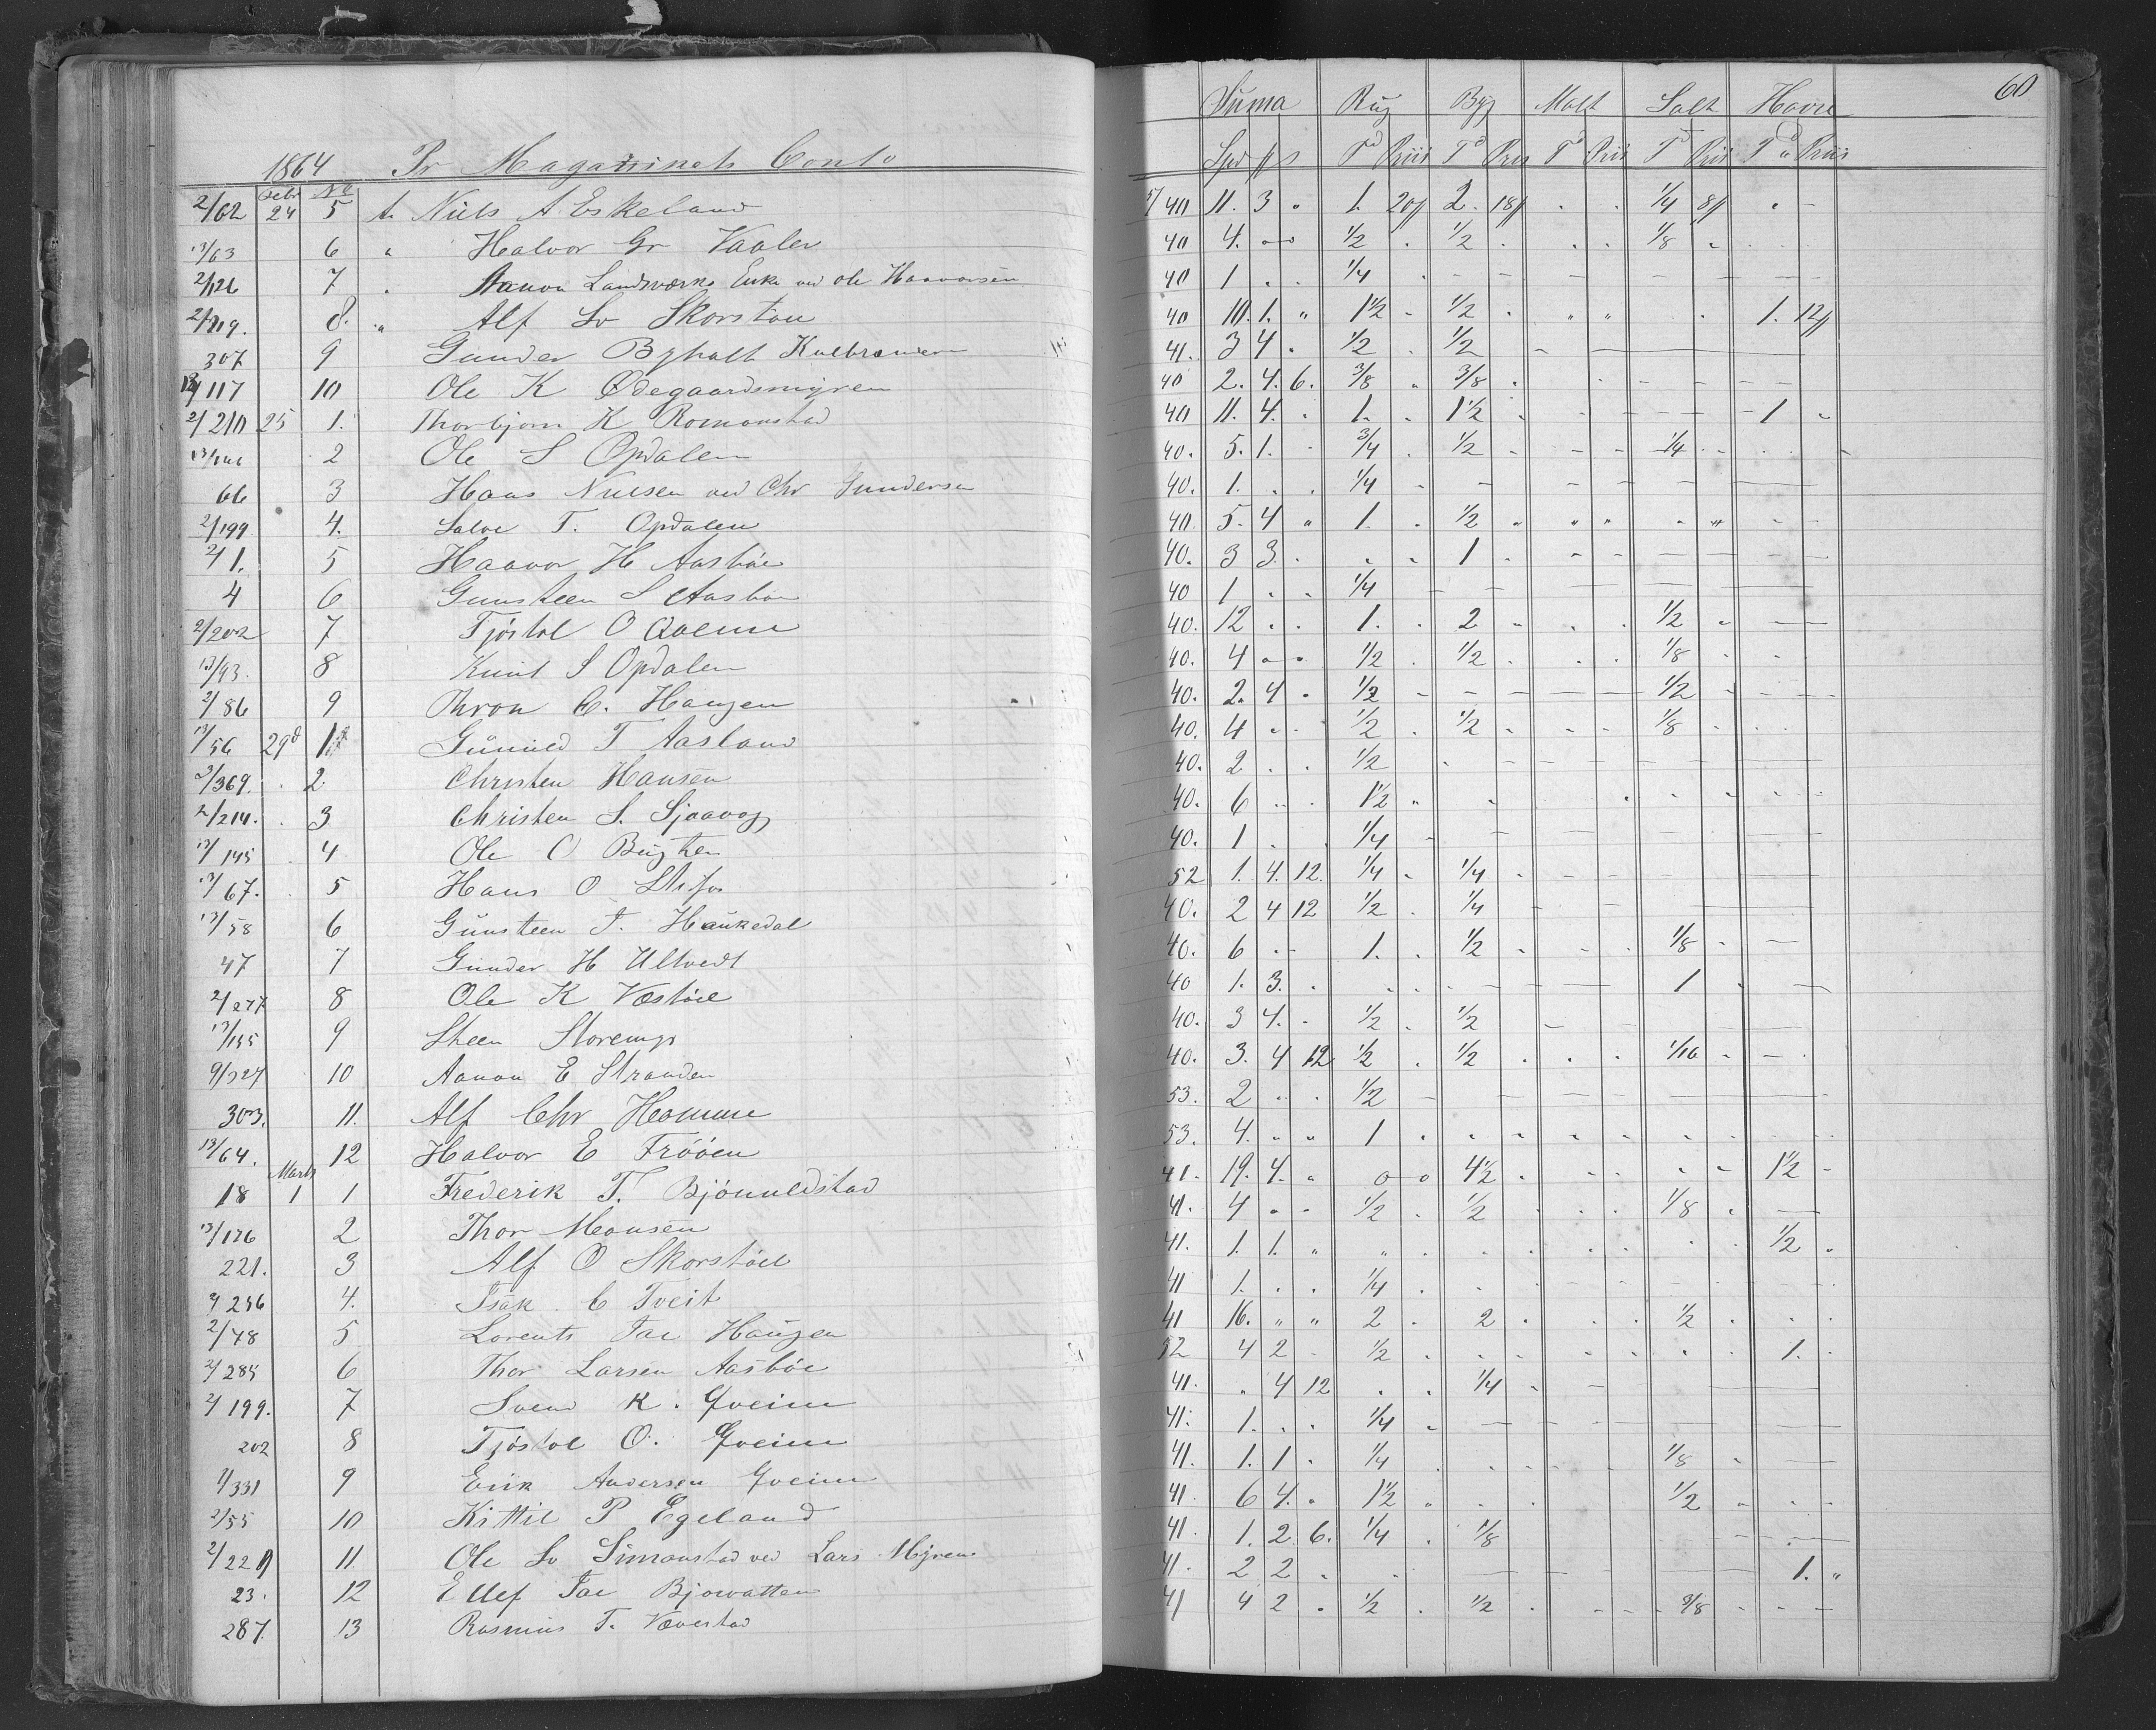 60
1864 Pr Magazinets Conto
Suma Rug Byg Malt Salt Havre
Spd ß s Td Priis Td Pris Td Priis Td Priis Td Priis
2/62 Febr 24 No 5 Niels A. Eskeland 5/40 11. 3 " 1. 20ß 2. 18ß 1/4 8ß
13/63 6 " Halvor Gr Vaaler 40 4. 1/2 1/2 1/8
2/126 7 " Aanon Landsværks Enke ved Ole Haavorsen 40 1 1/4
2/119. 8. " Alf Sv Skorstøu 40 10. 1. " 1 1/2 1/2 1. 12ß
307 9 Gunder Byholt 41. 3 4 1/2 1/2
117 10 Ole K Ødegaardsmyren 40 2. 4. 6. 3/8 3/8
2/210 25 1. Thorbjørn K Romonstad 40 11. 4. 1. 1 1/2 1
2 Ole S Opdalen 40. 5. 1. 3/4 1/2 1/4
66 3 Hans Nielsen ved Chr Gundersen 40. 1. 1/4
2/199 4. Salve T. Opdalen 40 5. 4 " 1. 1/2
2/1. 5 Haavor H Aasbøe 40. 3 3. 1
4 6 Gunsteen S Aasbøe 40 1 1/4
2/202 7 Tjøstol O Qveim 40. 12 1. 2 1/2
13/93. 8 Knut S Opdalen 40. 4 1/2 1/2 1/8
2/86 9 Thron C. Haugen 40. 2. 4 1/2 1/2
13/56 29d 1 Gunuld T Aasland 40. 4 1/2 1/2 1/8
2/369. 2. Christen Hansen 40. 2 1/2
2/214. 3 Christen S. Sjaavog 40. 6 1 1/2
13/145 4 Ole O Bugten 40. 1 1/4
13/67. 5 Hans O Stifos 52 1. 4. 12. 1/4 1/4
13/58 6 Gunsteen T. Haukedal 40. 2 4 12 1/2 1/4
47 7 Gunder H Ultvedt 40. 6 1. 1/2 1/8
2/277 8 Ole K Væstøel 40 1. 3. 1
13/155 9 Steen Storemyr 40. 3 4. 1/2 1/2
9/327 10 Aanon E Stranden 40. 3. 4 12 1/2 1/2 1/16
303. 11. Alf Chr Homme 53. 2 1/2
13/64. 12 Halvor E Frøøen 53. 4. " " 1
18 Marts 1 1 Frederik T. Bjónuldstad 41. 19. 4. " 0 0 4 1/2 1 1/2
13/126 2 Thor Monsen 41. 4 1/2 1/2 1/8
221. 3 Alf O Skorstøel 41. 1. 1. " 1/2
2/256 4. Isak C Tveit 41 1. 1/4
2/78 5 Lorents Jac Haugen 41 16. " " 2 2 1/2
2/285 6 Thor Larsen Aasbøe 52 4 2 1/2 1.
2/199. 7 Svend K. Qveim 41. " 4 12 1/4
202 8 Tjøstol O. Qveim 41. 1. 1/4
2/331 9 Erik Andersen Qveim 41. 1. 1 1/4 1/8
2/55 10 Kittil P Egeland 41. 6 4. " 1 1/2 1/2
2/220 11. Ole Sv Simonstad ved Lars Myren 41. 1. 2 6. 1/4 1/8
23. 12 Ellef Jac Bjorvatten 41. 2 2 1. "
287. 13 Rasmus T. Vævestad 41 4 2 1/2 1/2 3/8